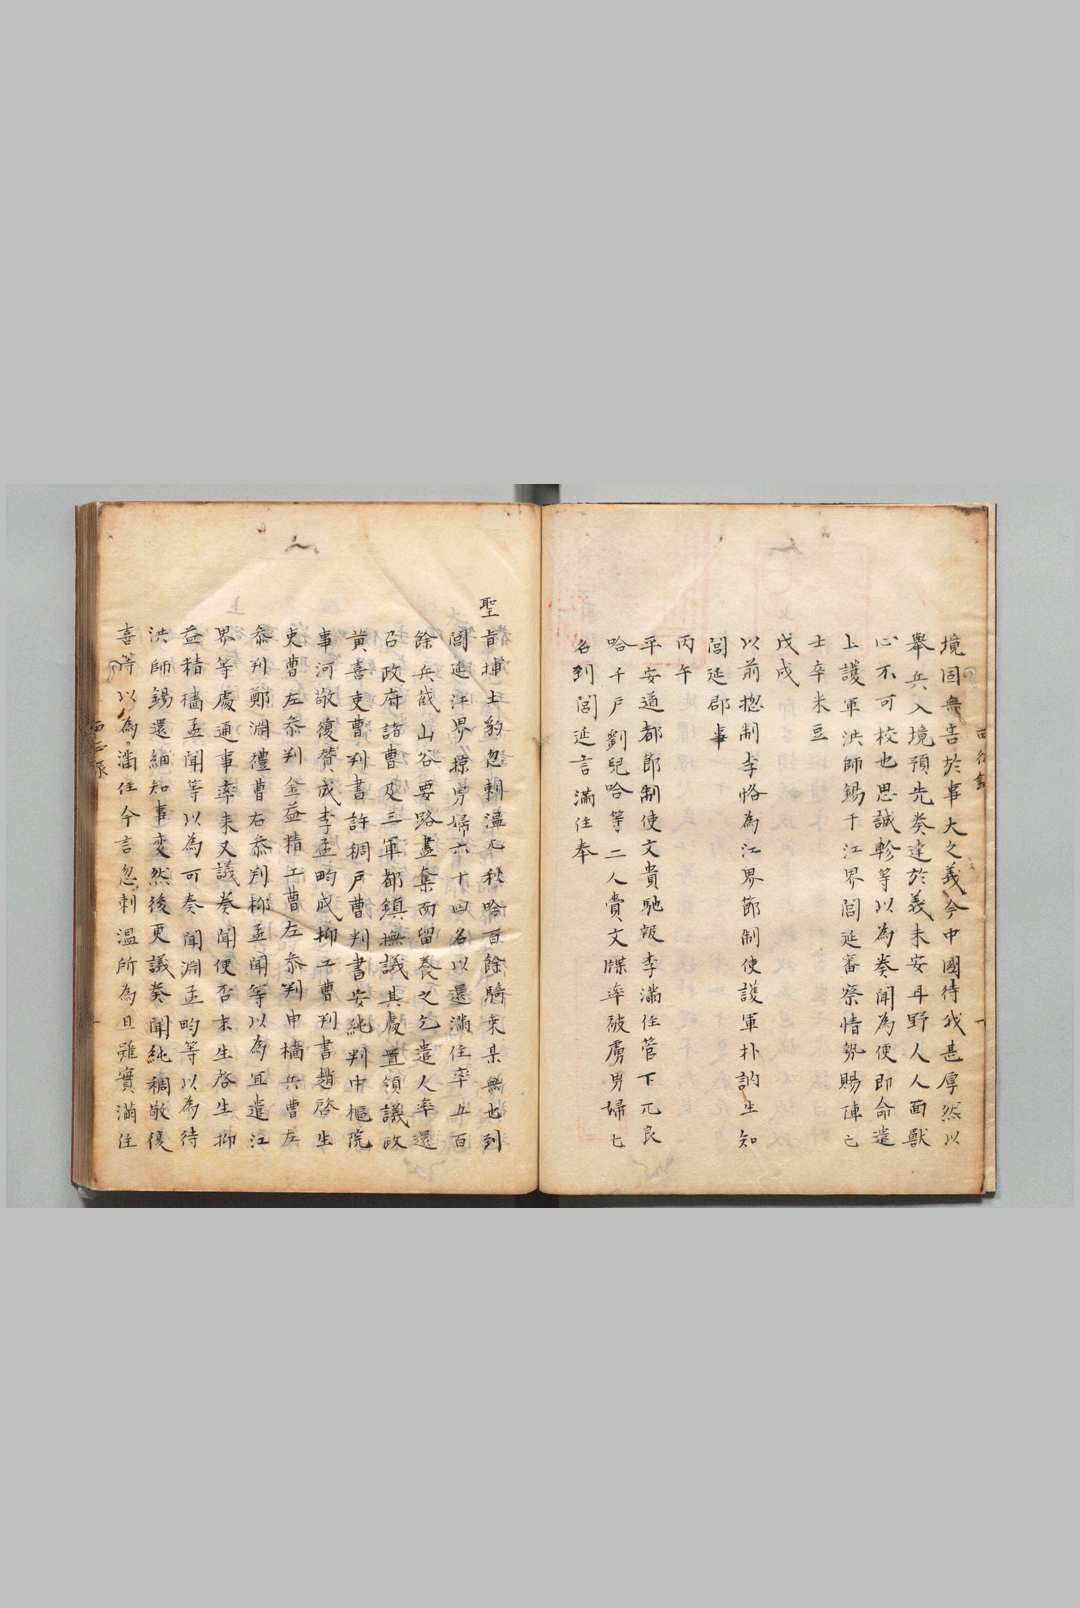 境固無害於事大之義今中國待我甚厚然以
舉兵入境預先奏達於義未安耳野人人面獸
心不可校也思誠軫等以為奏聞為便即命遣
上護軍洪師錫于江界閭延審察情勢賜陣亡
士卒米豆
戊戌
以前摠制李恪為江界節制使護軍朴訥生知
閭延郡事
丙午
平安道都節制使文貴馳報李滿住管下兀良
哈千戶劉兒哈等二人賫文牒率被虜男婦七
名到閭延言滿住奉
聖旨捕土豹忽剌溫兀狄哈百餘騎乘其無也到
閭延江界掠男婦六十四名以還滿住率五百
餘兵截山谷要路盡奪而留養之乞遣人率還
召政府諸曹及三軍都鎮撫議其處置領議政
黃喜吏曹判書許稠戶曹判書安純判中樞院
事河敬復贊成李孟畇成抑工曹判書趙啓生
吏曹左叅判金益精工曹左叅判申檣兵曹左
叅判鄭淵禮曹右叅判柳孟聞等以為宜遣江
界等處通事率來又議奏聞便否末生啓生抑
益精檣孟聞等以為可奏聞淵孟畇等以為待
洪師錫還細知事変然後更議奏聞純稠敬復
喜等以為滿住今言忽剌溫所為且雖實滿住
西征錄